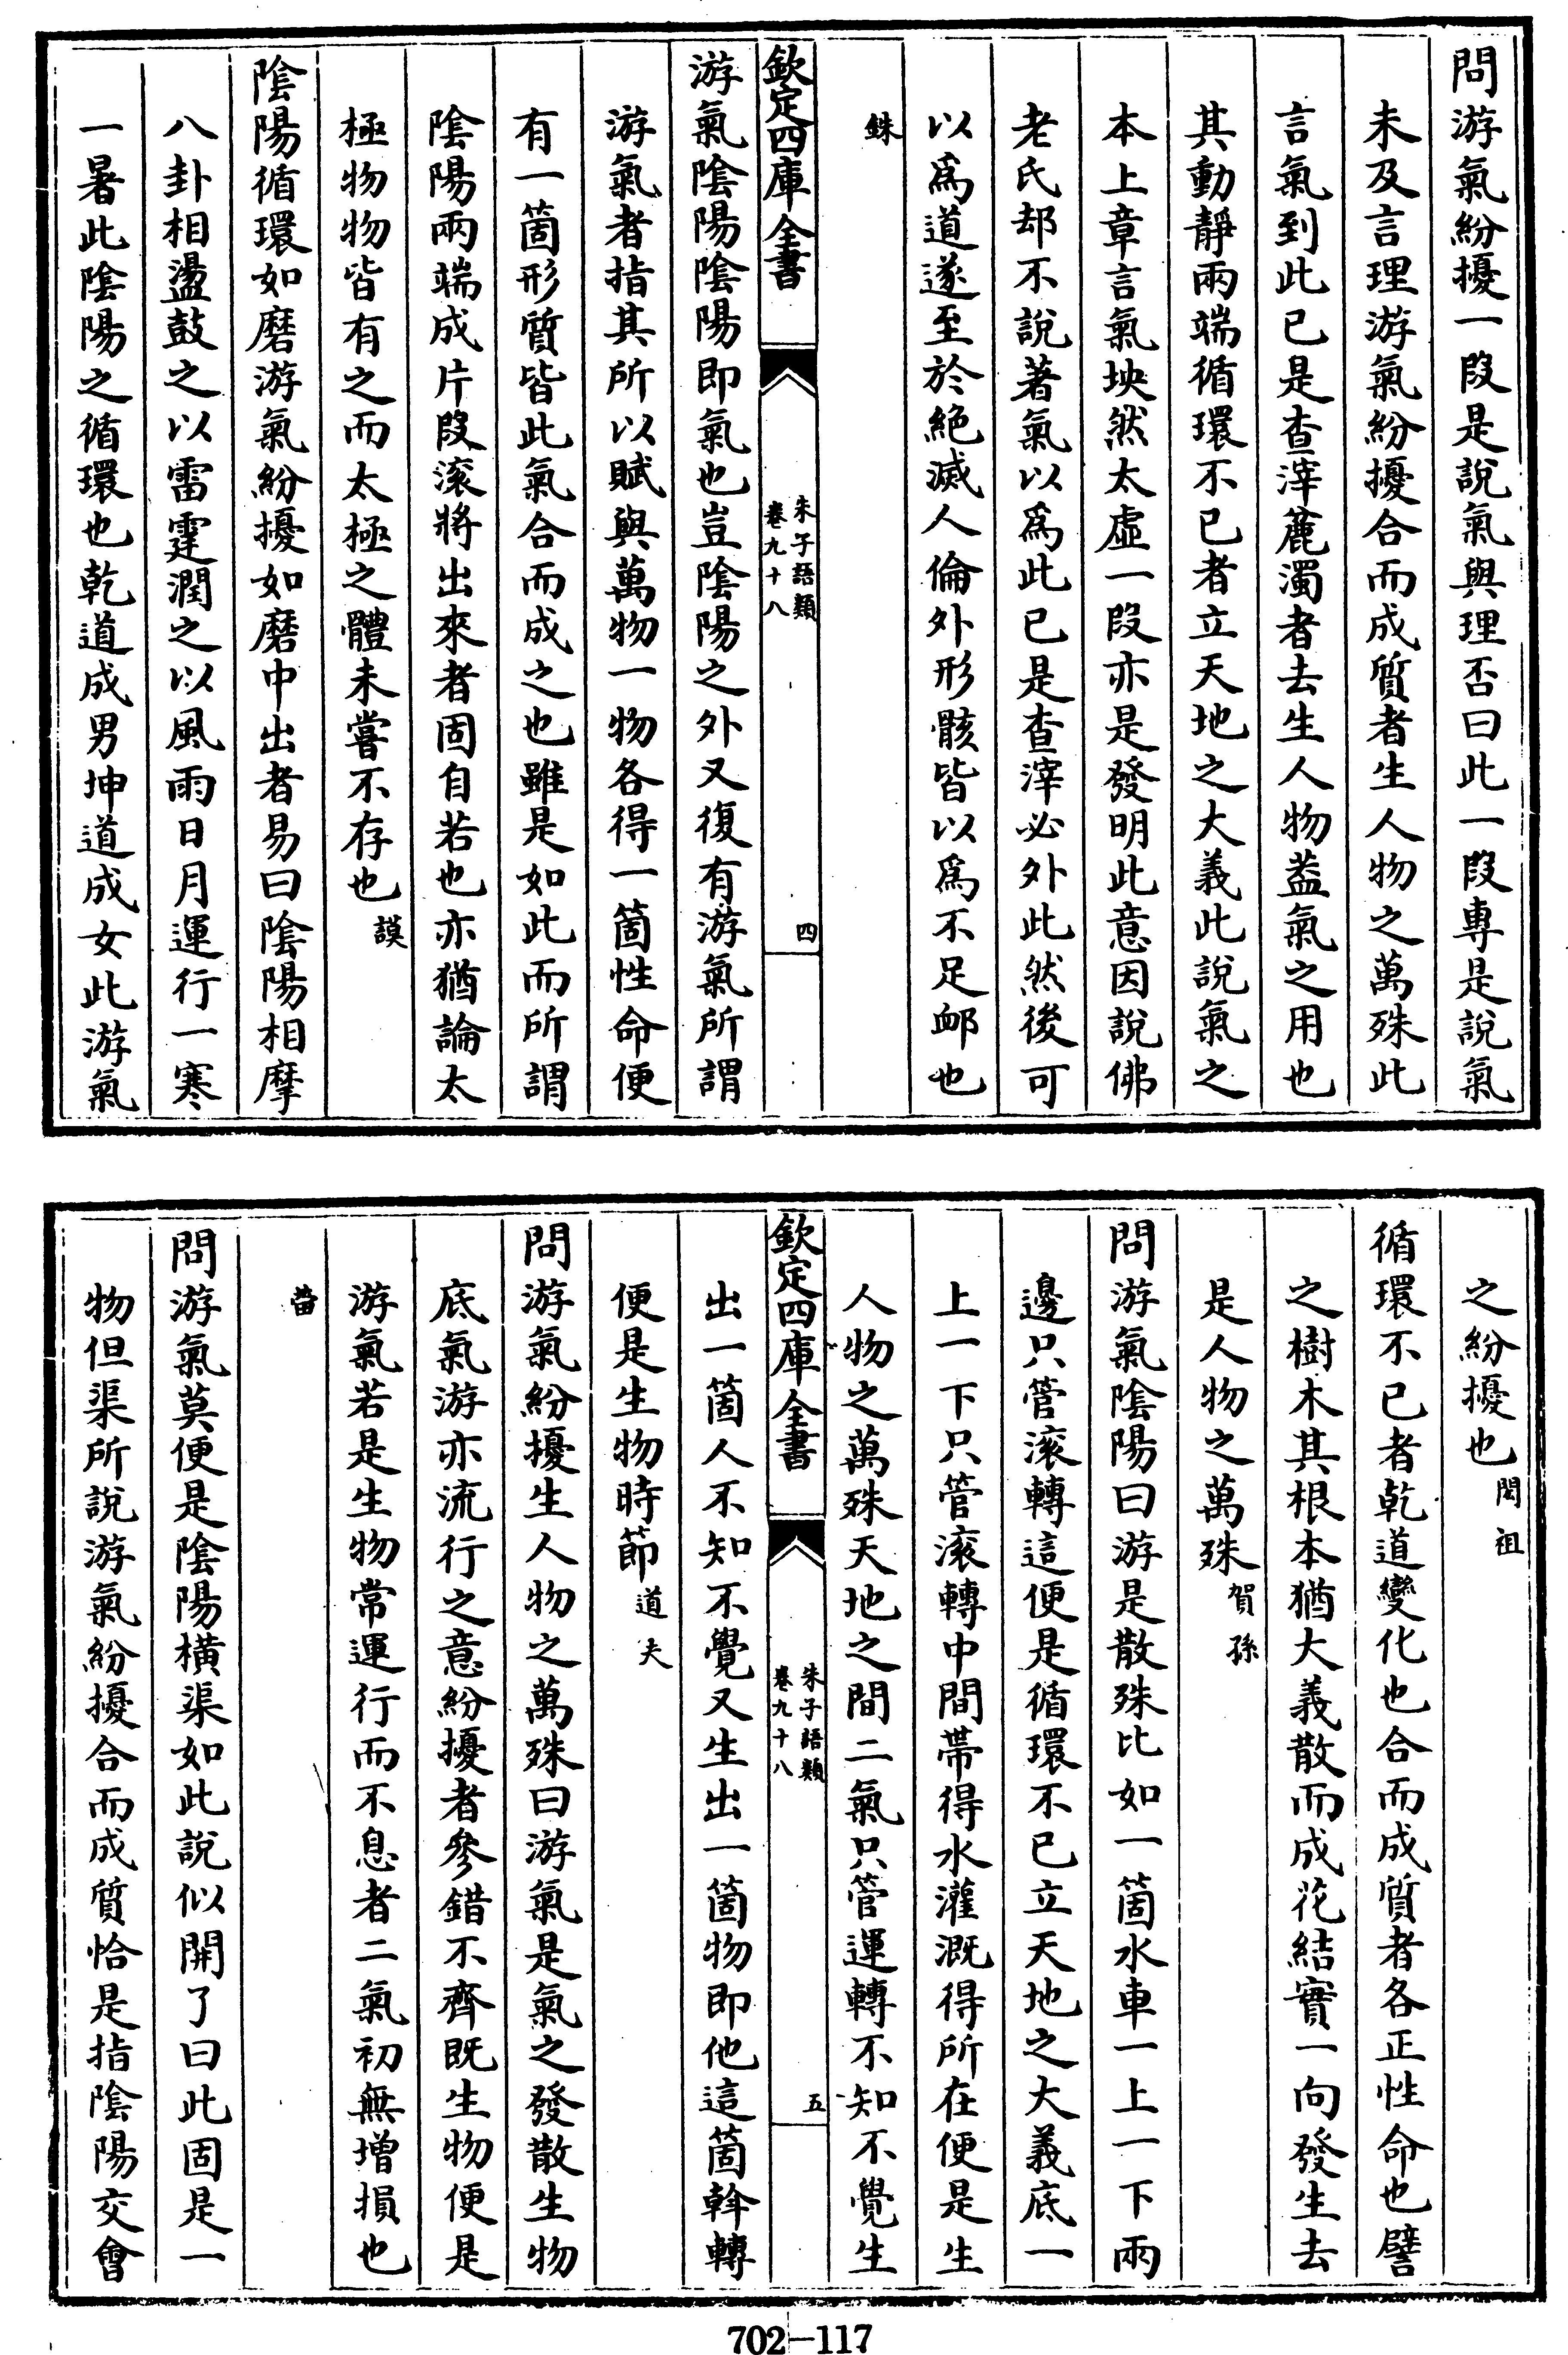 問游氣紛擾一段是說氣與理否曰此一段專是說氣
未及言理游氣紛擾合而成質者生人物之萬殊此
言氣到此已是查滓麄濁者去生人物葢氣之用也
其動靜兩端循環不已者立天地之大義此說氣之
本上章言氣坱然太虛一段亦是發明此意因說佛
老氏却不說著氣以為此已是查滓必外此然後可
以為道遂至於絶滅人倫外形骸皆以為不足邮也
銖
欽定四庫全書
朱子語類
卷九十八
四
游氣陰陽陰陽即氣也豈陰陽之外又復有游氣所謂
游氣者指其所以賦與萬物一物各得一箇性命便
有一箇形質皆此氣合而成之也雖是如此而所謂
陰陽兩端成片段滚將出來者固自若也亦猶論太
極物物皆有之而太極之體未嘗不存也謨
陰陽循環如磨游氣紛擾如磨中出者易曰陰陽相摩
八卦相盪鼓之以雷霆潤之以風雨日月運行一寒
一暑此陰陽之循環也乾道成男坤道成女此游氣
之紛擾也閎祖
循環不已者乾道變化也合而成質者各正性命也譬
之樹木其根本猶大義散而成花結實一向發生去
是人物之萬殊賀孫
問游氣陰陽曰游是散殊比如一箇水車一上一下兩
邊只管滚轉這便是循環不已立天地之大義底一
上一下只管滚轉中間帶得水灌溉得所在便是生
人物之萬殊天地之間二氣只管運轉不知不覺生
欽定四庫全書
朱子語類
卷九十八
五
出一箇人不知不覺又生出一箇物即他這箇斡轉
便是生物時節道夫
問游氣紛擾生人物之萬殊曰游氣是氣之發散生物
底氣游亦流行之意紛擾者參錯不齊既生物便是
游氣若是生物常運行而不息者二氣初無增損也
㽦
問游氣莫便是陰陽橫渠如此說似開了曰此固是一
物但渠所說游氣紛擾合而成質恰是指陰陽交會
702—117